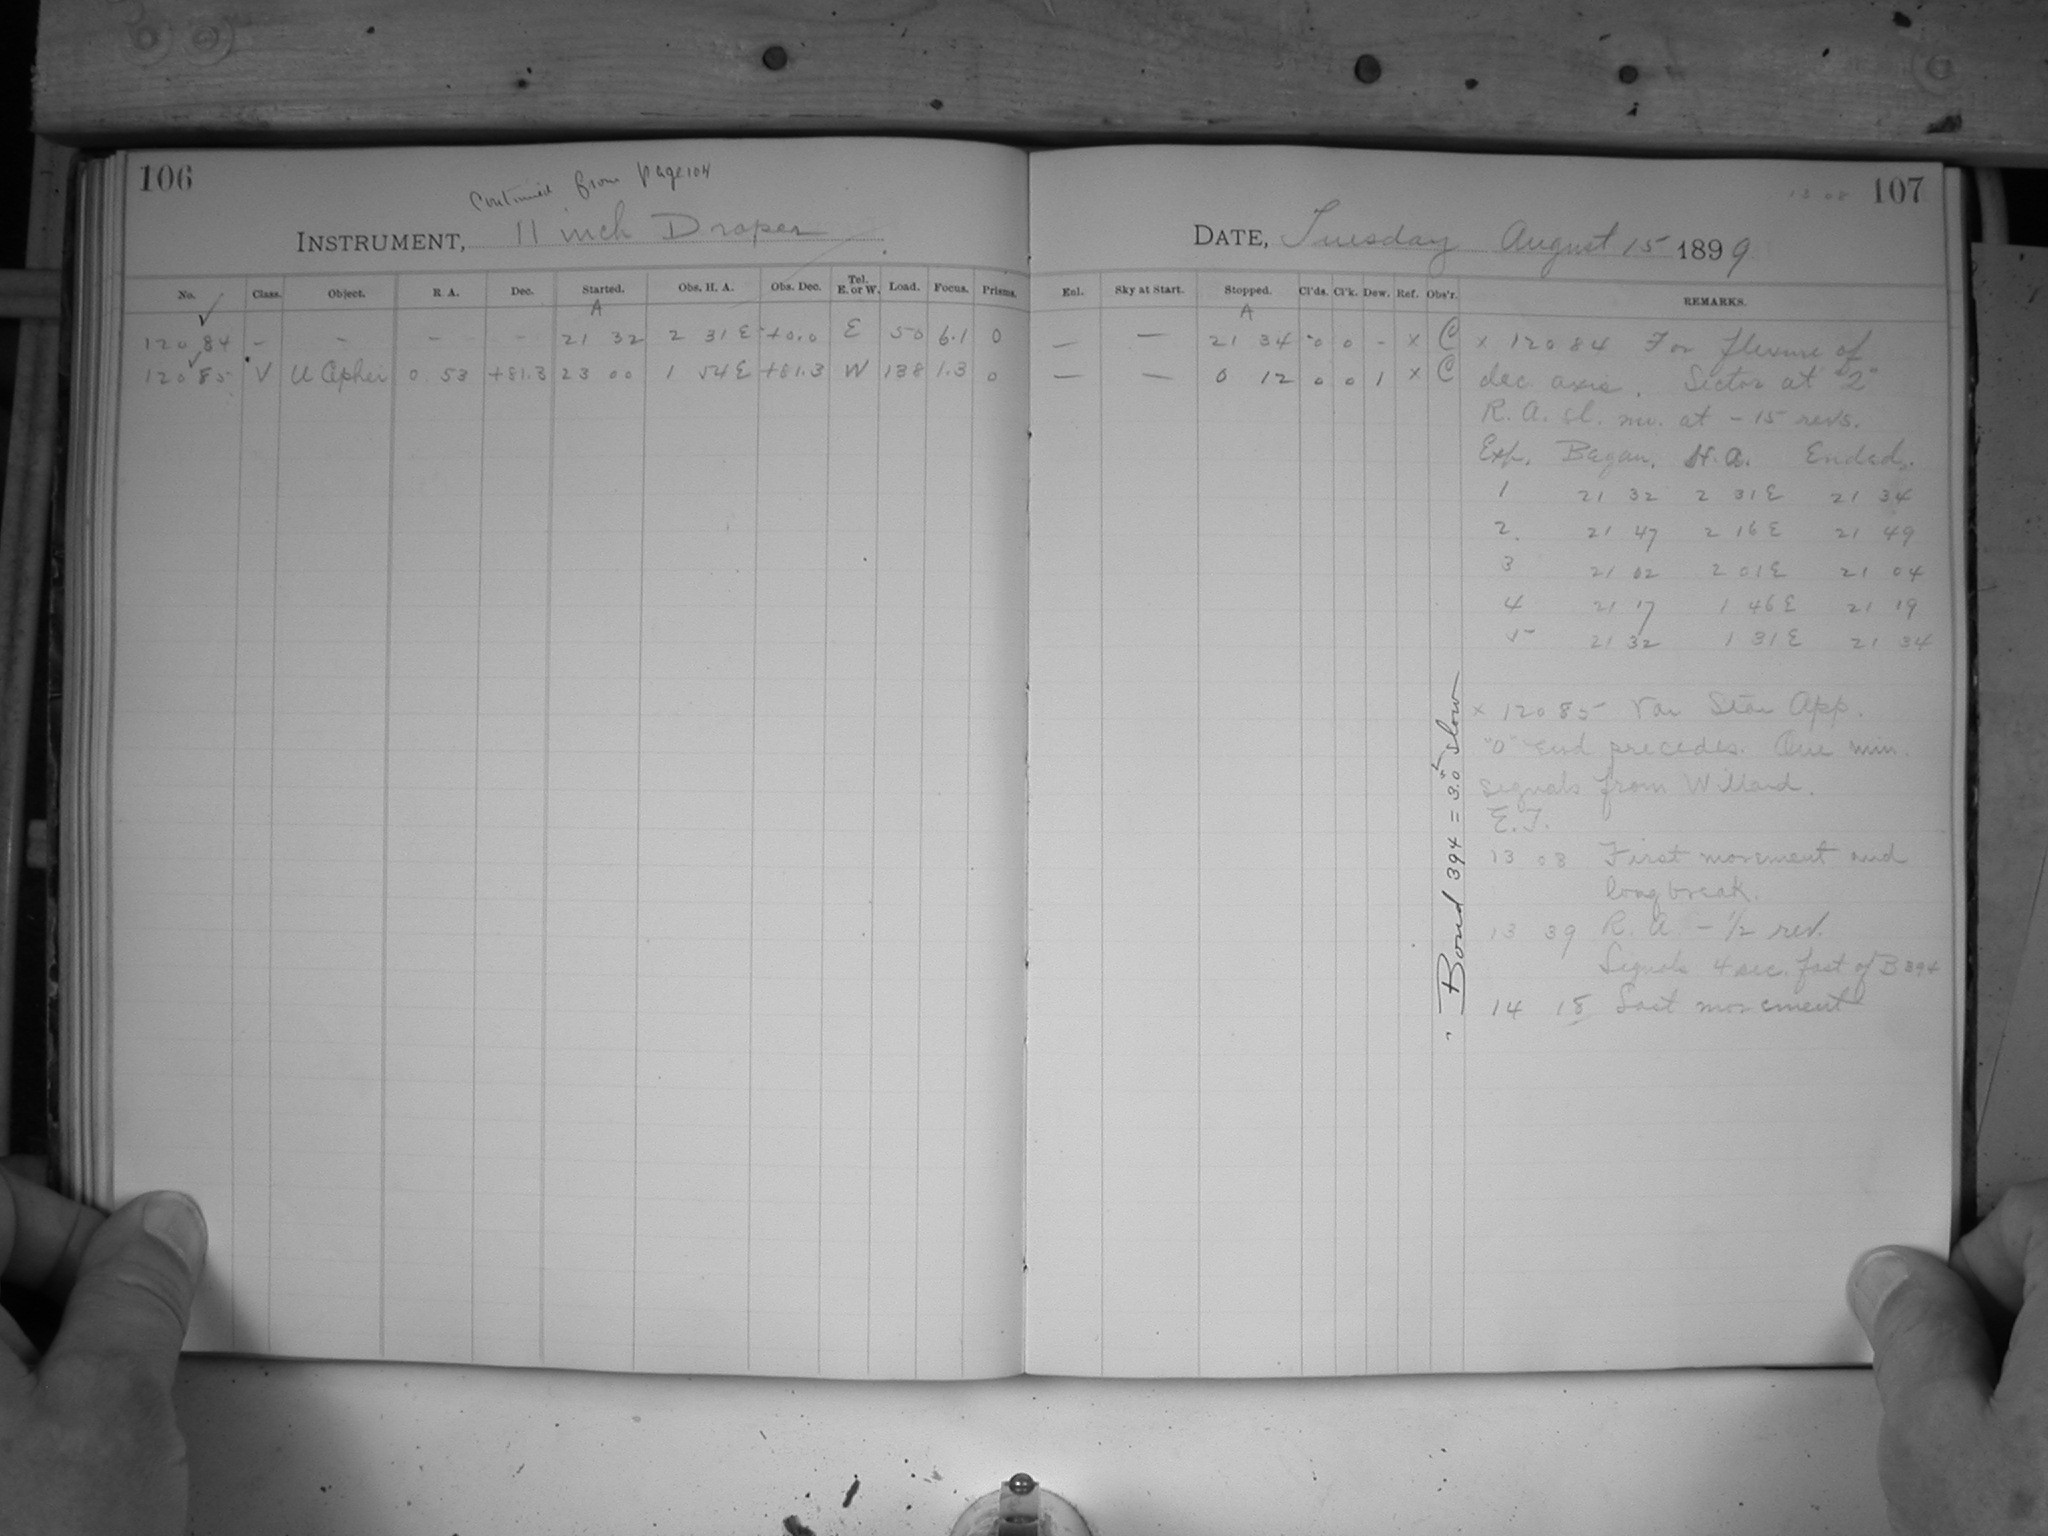 106
Continued from Page 104
INSTRUMENT, 11 inch Draper
No. Class. Object. R. A. Dec. Started. Obs. H. A. Obs. Dec. Tel. E. or W. Load. Focus. Prisms.
A
12084 - - - - 21 32 2 31 E +0.0 E 50 6.1 0
12085 V U Cephei 0 53 +81.3 23 00 1 54 E +81.3 W 138 1.3 0
13 08 107
DATE, Tuesday August 15 1899
Enl. Sky at Start. Stopped. Cl'ds. Cl'k. Dew. Ref. Obs'r. REMARKS.
A
— — 21 34 0 0 - x C x 12084 For flexure of
— — 0 12 0 0 1 x C dec. axis. Sector at "2"
R. A. sl. mo. at - 15 revs.
Exp. Began. H. A. Ended.
1 21 32 2 31 E 21 34
2 21 47 2 16 E 21 49
3 21 02 2 01 E 21 04
4 21 17 1 46 E 21 19
5 21 32 1 31 E 21 34
x 12085 Var Star App.
"0" end precedes. One min.
signals from Willard.
E. T.
13 03 First movement and
long break.
13 39 R. A. - 1/2 rev.
Signals 4 sec. fast of B 394
14 18 Last movement
Bond 394 = 3.0 slow